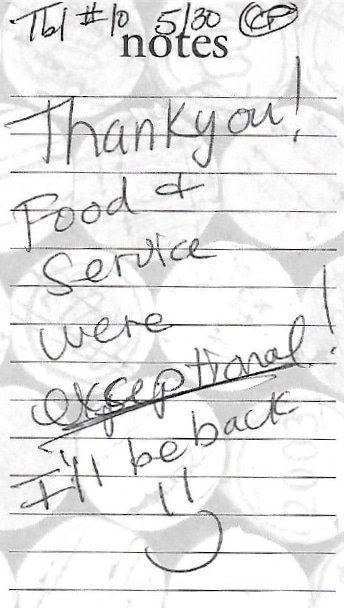 Tbl #10 5/30 CP
notes
Thank you!
Food &
Service
were
exceptional!
I'll be back